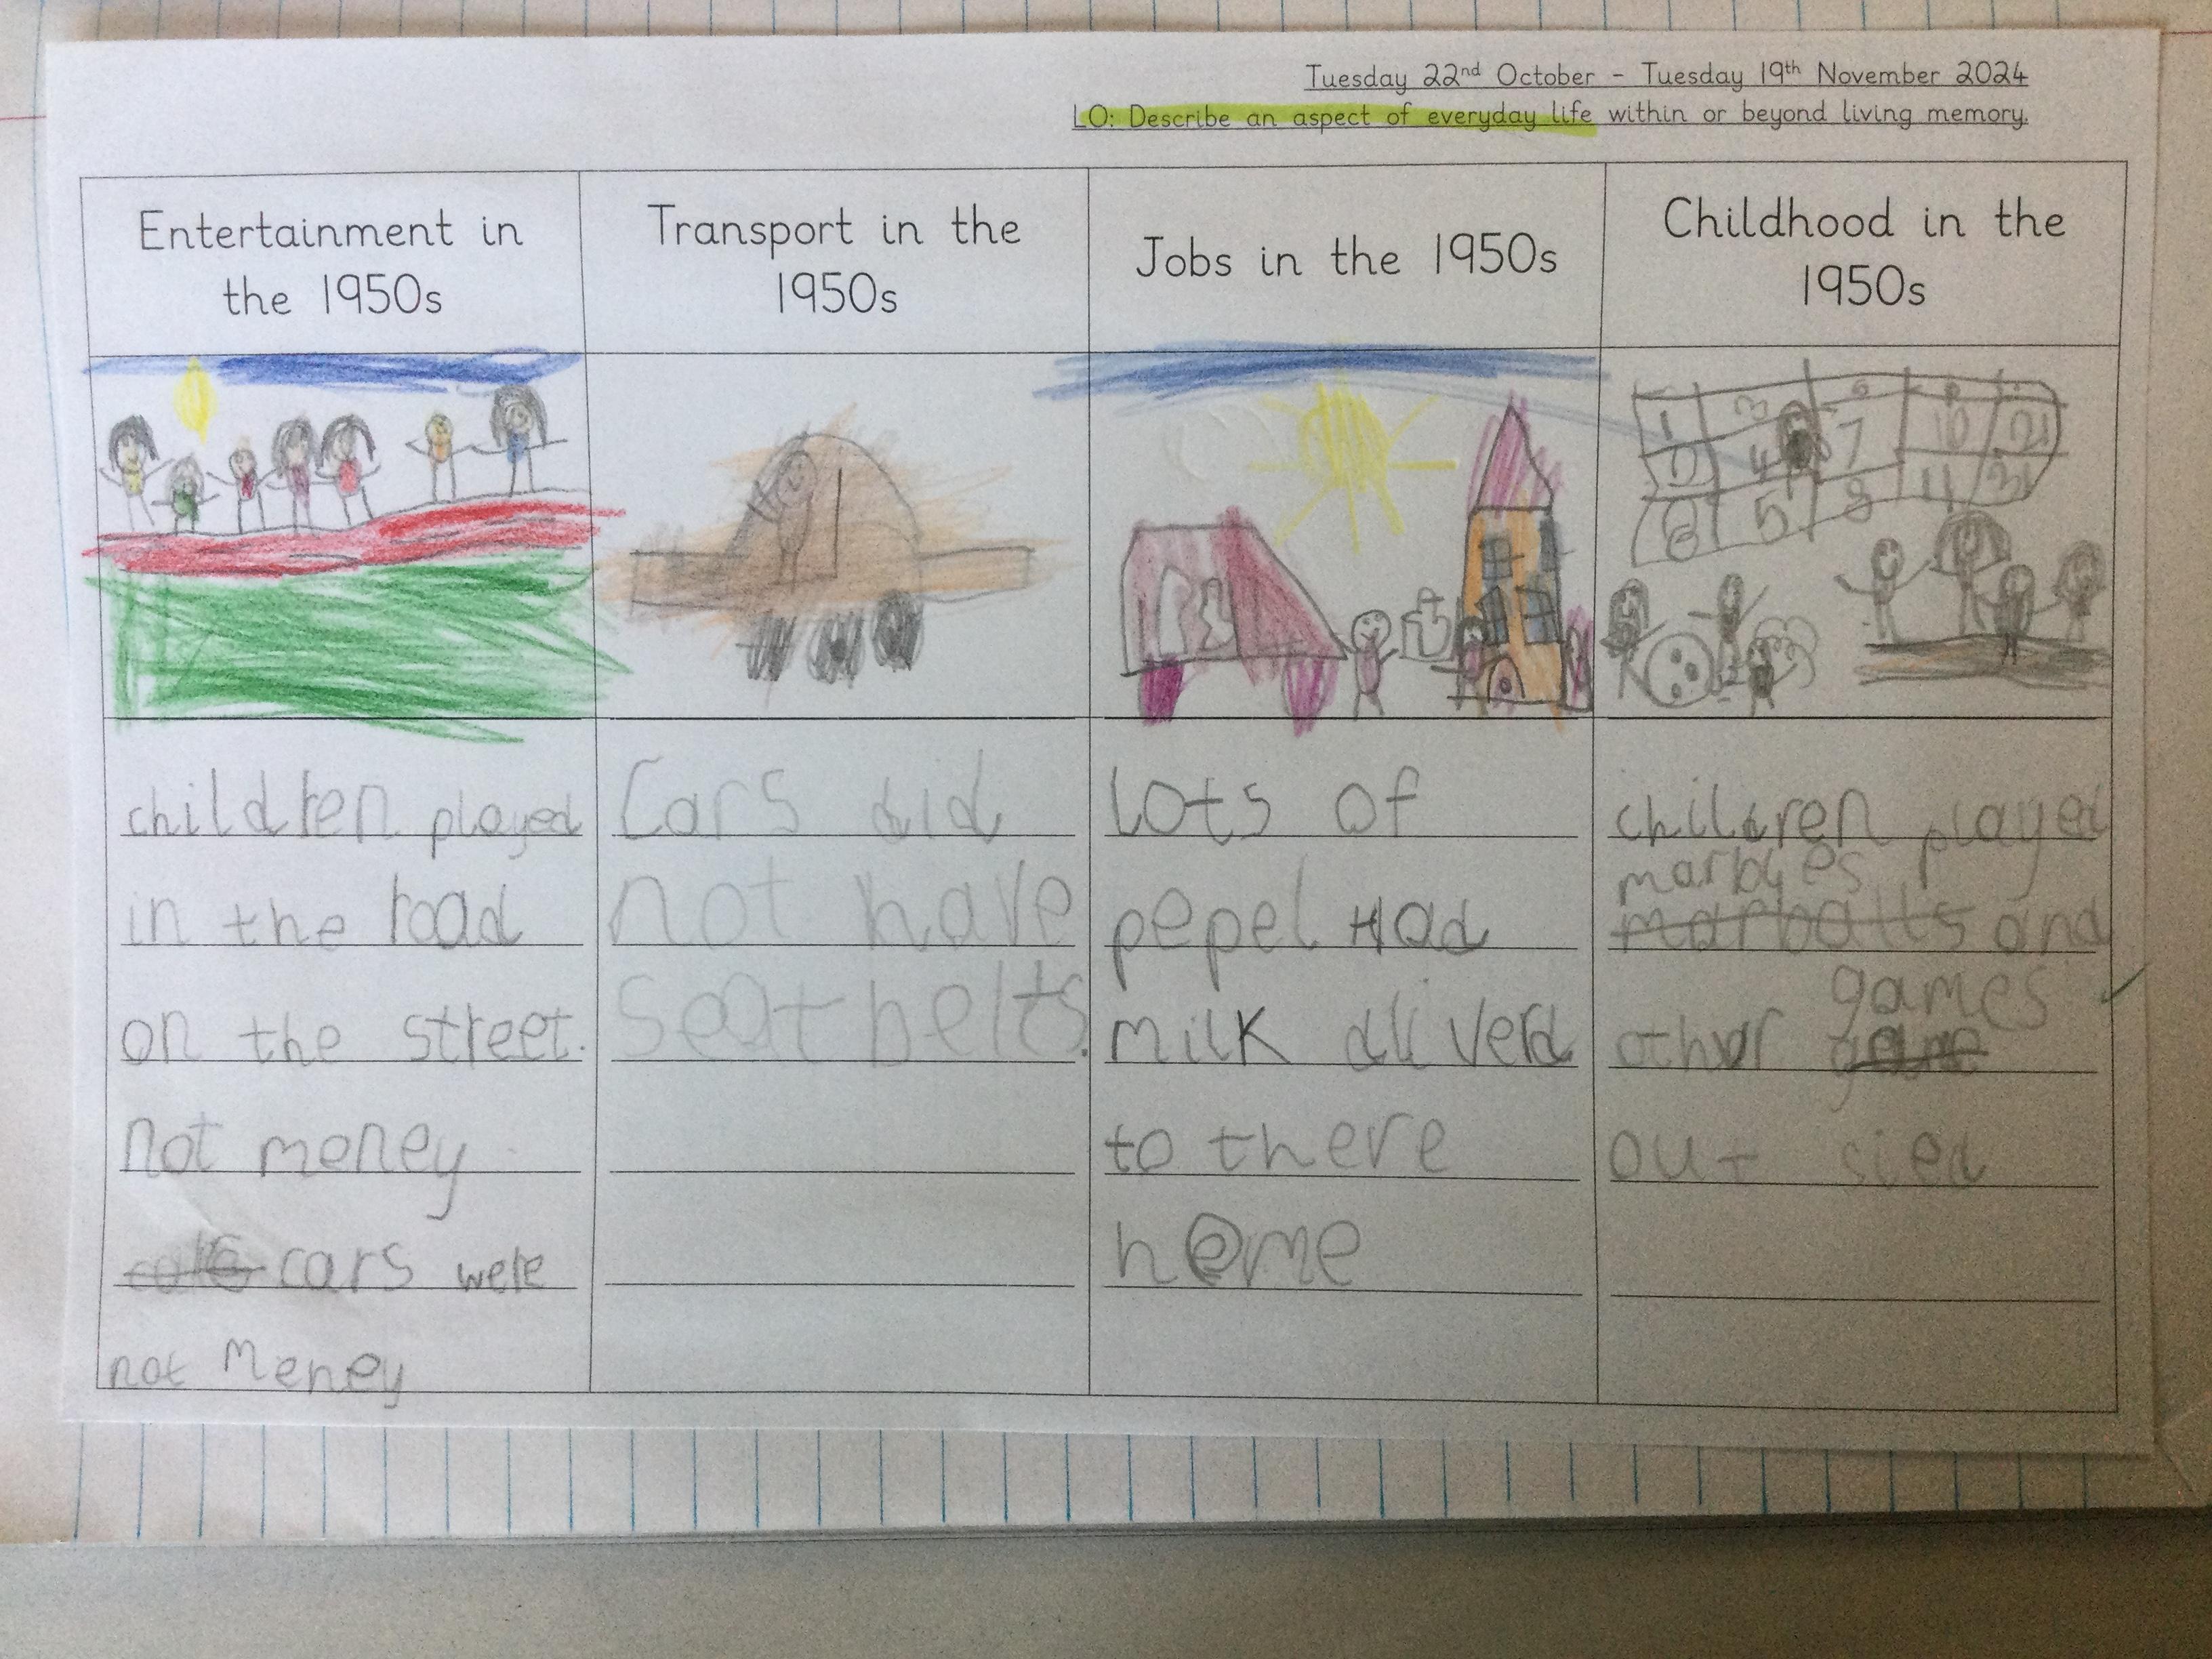 Tuesday 22nd October - Tuesday 19th November 2024
LO: Describe an aspect of everyday life within or beyond living memory.
Entertainment in
the 1950s
children played
in the road
on the street.
not meney
cars were
not Meney
Transport in the
1950s
Cars did
not have
seat belts.
Jobs in the 1950s
Lots of
pepel Had
milk dliverd
to there
home
Childhood in the
1950s
1 3 6 9
2 4 7 10 12
5 8 11
children played
marbles
marballs and
games
othur game
out sied